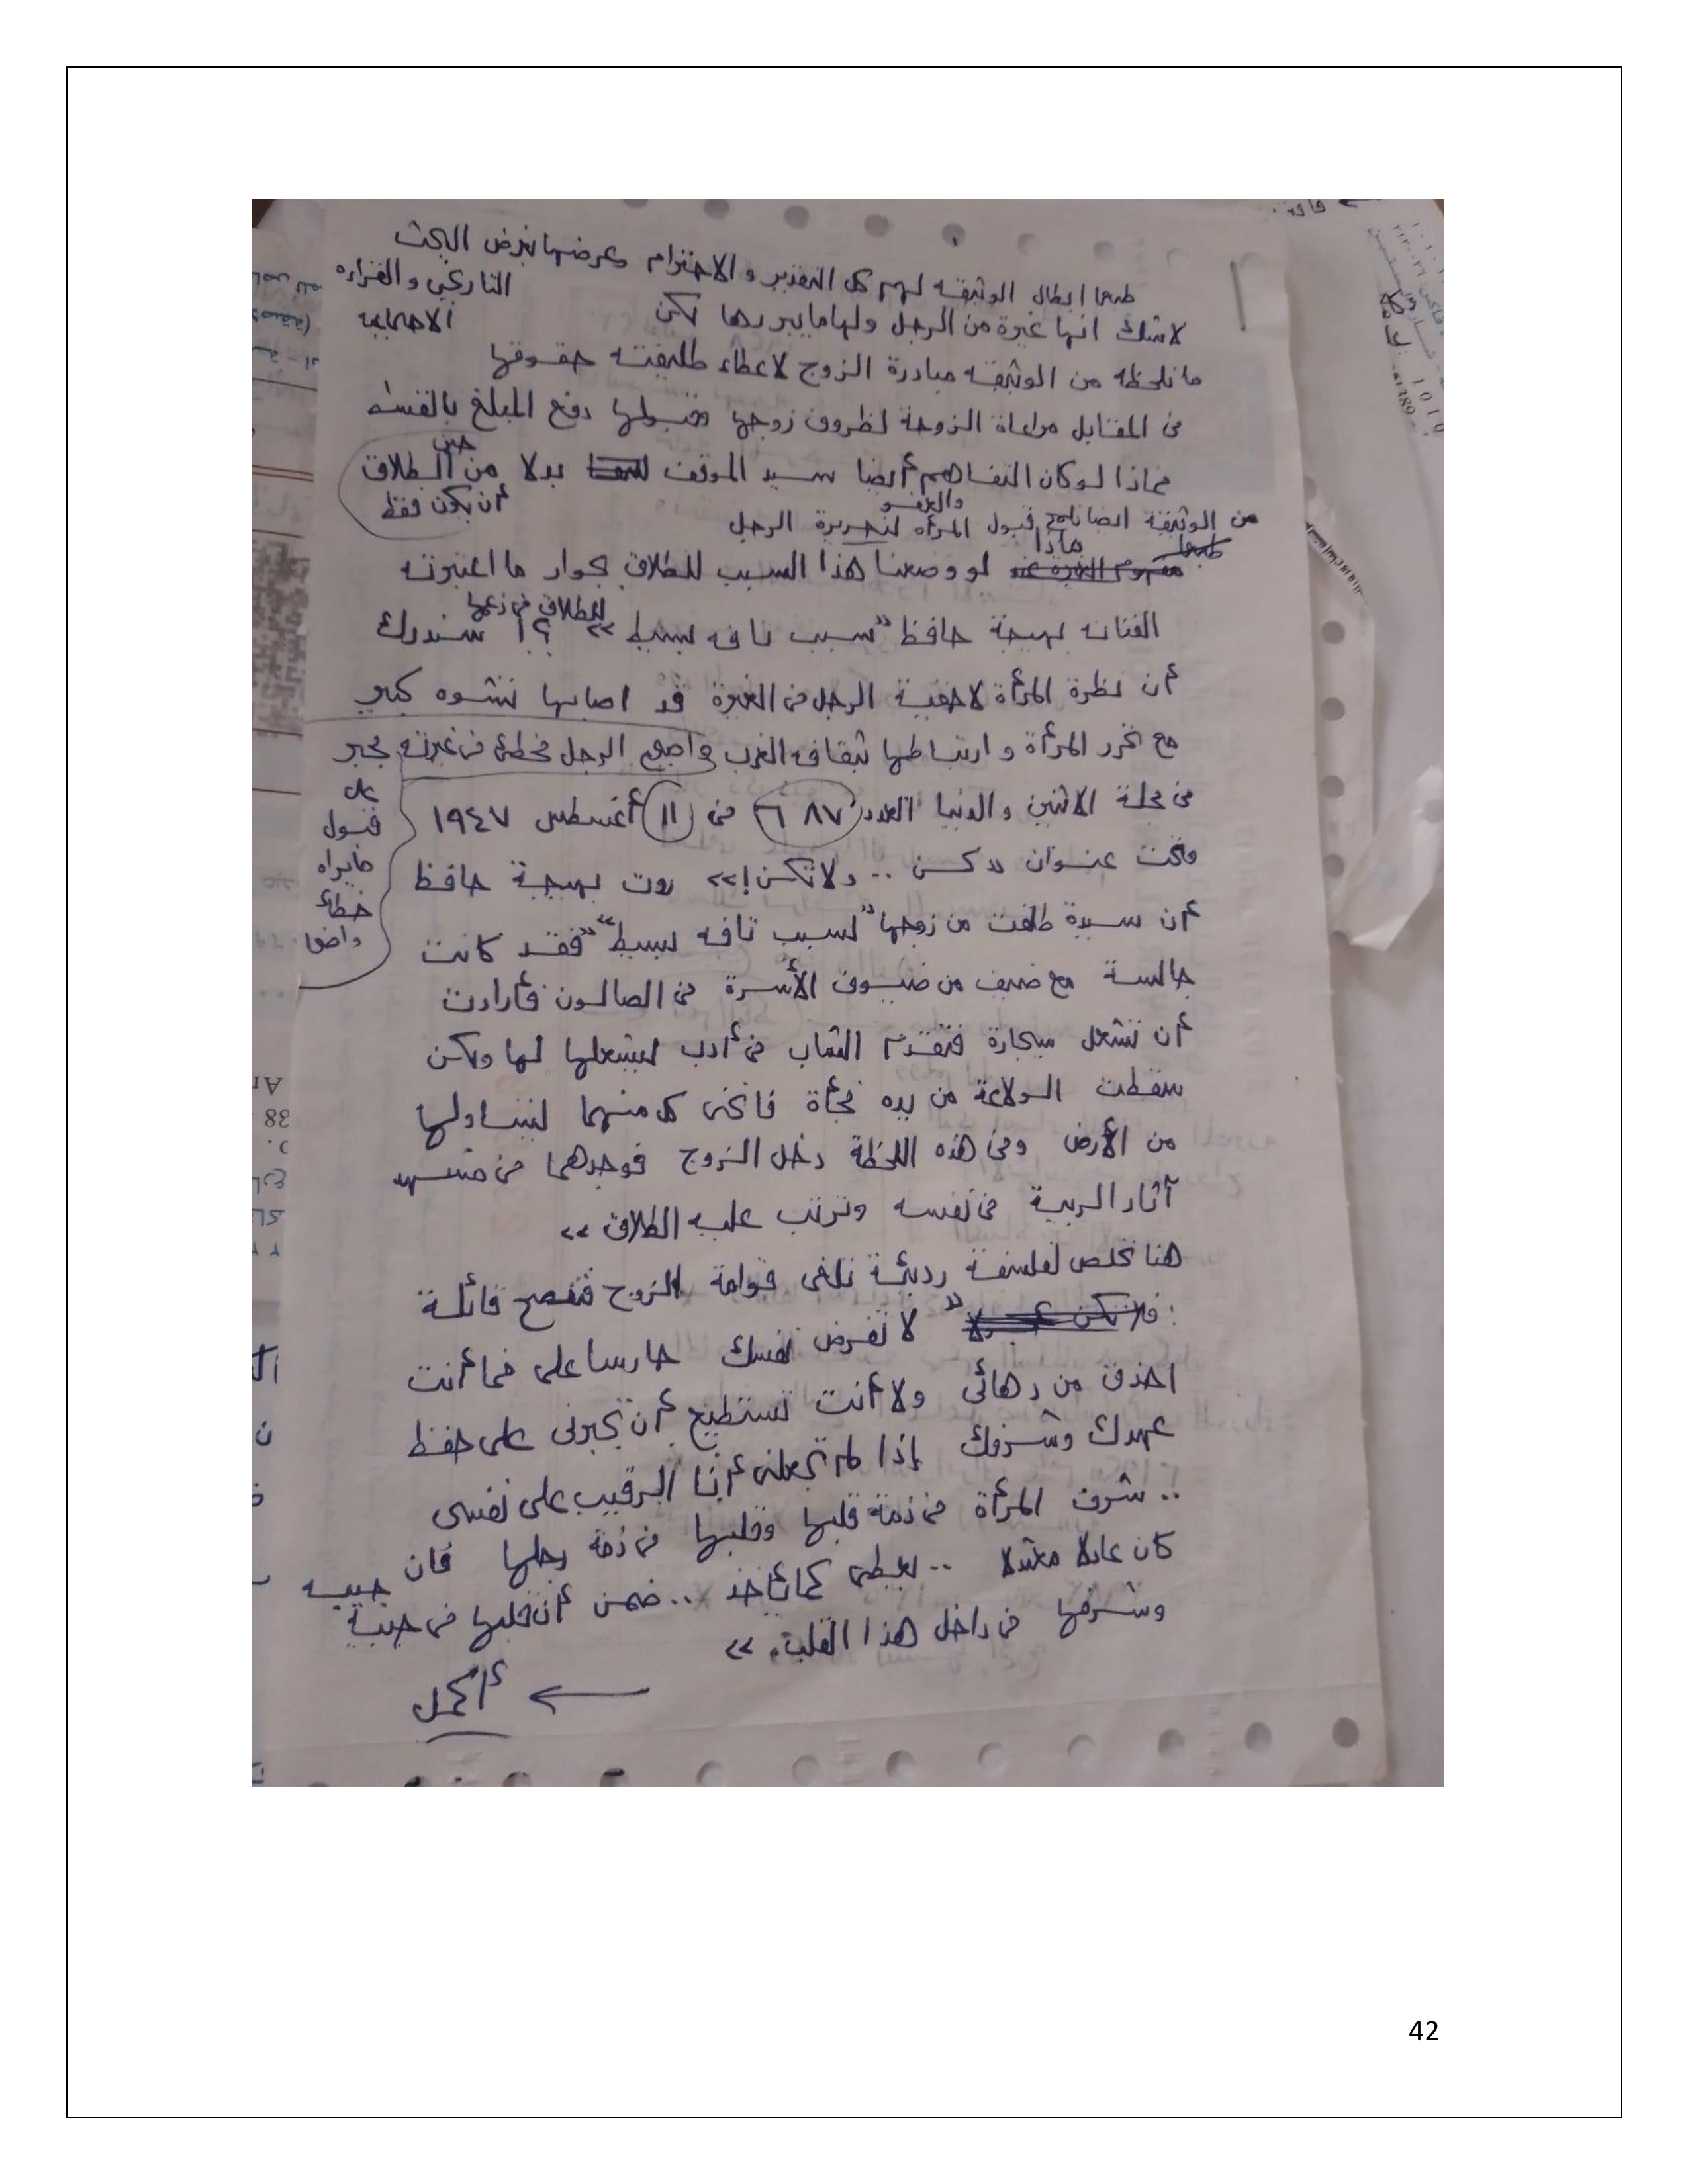 طبعا ابطال الوثيقه لهم كل التقدير والاحترام وعرضها بغرض البحث
التاريخي والقراءه
الاجتماعيه
لاشك انها غيرة من الرجل ولها مايبررها لكن
ما نلحظه من الوثيقه مبادرة الزوج لاعطاء طليقته حقوقها
فى المقابل مراعاة الزوجة لظروف زوجها وقبولها دفع المبلغ بالقسط
فماذا لوكان التفاهم أيضا سيد الموقف بدلا من حين الطلاق
أن يكون فقط
من الوثيقة ايضا نلمح قبول المرأه والعفو الرجل
طبعا ماذا لو وضعنا هذا السبب للطلاق بجوار ما اعتبرته
الفنانه بهيجة حافظ "سبب تافه بسيط" للطلاق فى زعمها ؟! سندرك
أن نظرة المرأة لاحقية الرجل فى الغيرة قد اصابها تشوه كبير
مع تحرر المرأة وارتباطها بثقافه الغرب واصبح الرجل مخطئ فى غيرته مجبر
على
قبول
مايراه
خطأ
واضحا
فى مجلة الاثنين والدنيا العدد ٦٨٧ فى ١١ أغسطس ١٩٤٧
وتحت عنوان «كن .. ولا تكن!» روت بهيجة حافظ
أن سيدة طلقت من زوجها "لسبب تافه بسيط" "فقد كانت
جالسة مع ضيف من ضيوف الأسرة فى الصالون فأرادت
أن تشعل سيجارة فتقدم الشاب فى أدب ليشعلها لها ولكن
سقطت الولاعة من يده فجأة فانحنى كل منهما ليتناولها
من الأرض وفى هذه اللحظة دخل الزوج فوجدهما فى مشهد
آثار الريبة فى نفسه وترتب عليه الطلاق»
هنا تخلص لفلسفة رديئة تلغى قوامة الزوج فتنصح قائلة
: فلا تكن "لا تفرض نفسك حارسا على فما أنت
احذق من دهائى ولا أنت تستطيع أن تجبرنى على حفظ
عهدك وشرفك إذا لم تجعلنى أنا الرقيب على نفسى
.. شرف المرأة فى ذمة قلبها وقلبها فى ذمة رجلها فان
كان عادلا معتدلا .. يعطى كما يأخذ .. ضمن أن قلبها فى جيبه جيبه
وشرفها فى داخل هذا القلب.»
← أكمل
42